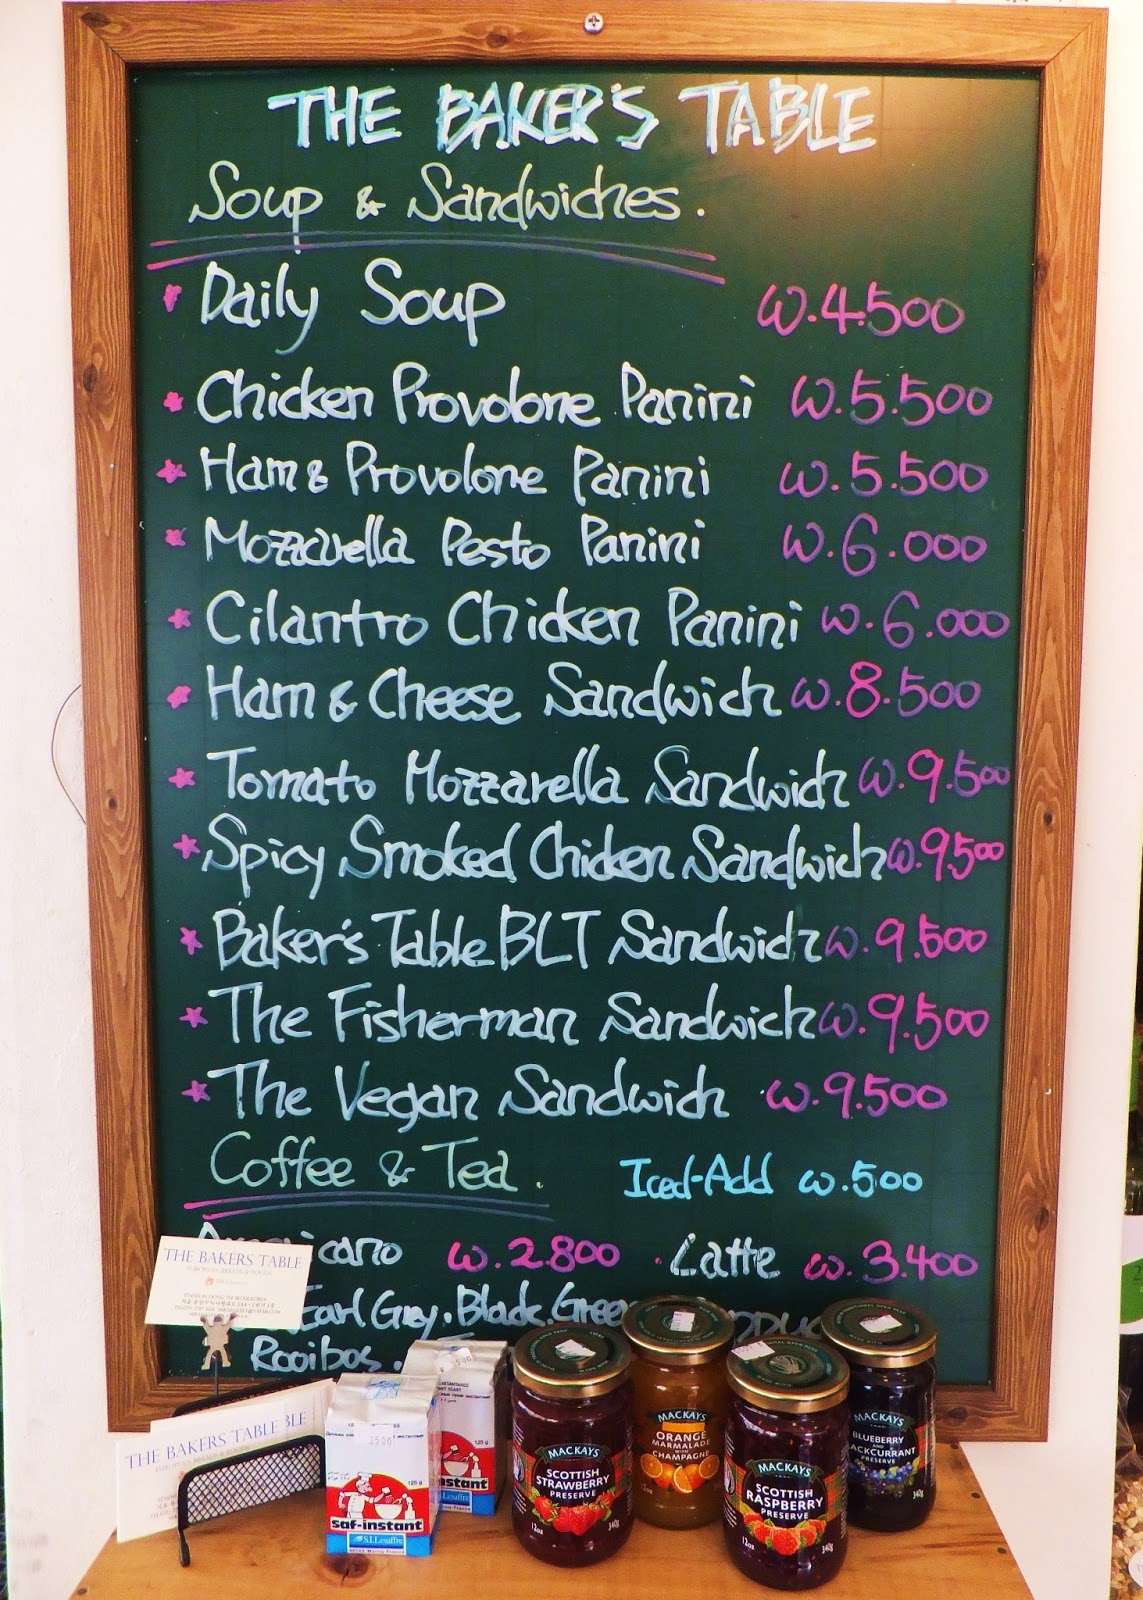 THE BAKER'S TABLE
Soup & Sandwiches.
Daily Soup W.4.500
Chicken Provolone Panini W.5.500
Ham & Provolone Panini W.5.500
Mozzarella Pesto Panini W.6.000
Cilantro Chicken Panini W.6.000
Ham & Cheese Sandwich W.8.500
Tomato Mozzarella Sandwich W.9.500
Spicy Smoked Chicken Sandwich W.9.500
Baker's Table BLT Sandwich W.9.500
The Fisherman Sandwich W.9.500
The Vegan Sandwich W.9.500
Coffee & Tea. Iced-Add W.500
W.2.800 Latte W.3.400
Earl Grey. Black.
Rooibos.
THE BAKERS TABLE
EUROPEAN BREADS & FOODS
THE BAKERS TABLE
BLE
1500
saf-instant
S.I.Lesaffre
125 g
1500
125 g
instant
MACKAYS
SCOTTISH
STRAWBERRY
PRESERVE
12oz 340g
MACKAYS
ORANGE
MARMALADE
WITH
CHAMPAGNE
MACKAYS
SCOTTISH
RASPBERRY
PRESERVE
12oz 340g
MACKAYS
BLUEBERRY
AND
ACKCURRANT
PRESERVE
340g